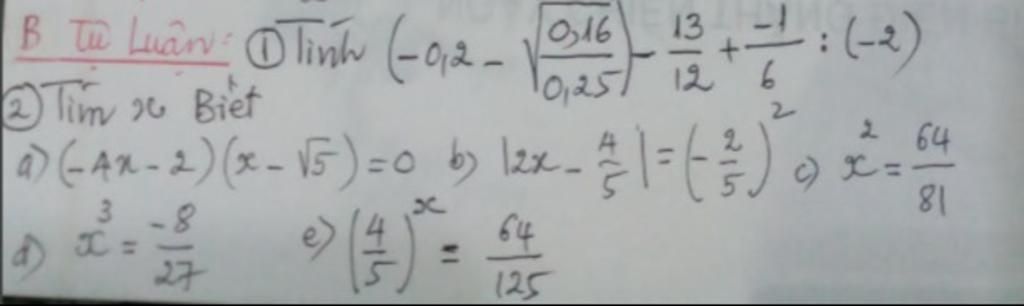 B Tự Luận: ① Tính (-0,2 - √(0,16/0,25)) - 13/12 + -1/6 : (-2)
② Tìm x Biết
a) (-4x - 2)(x - √5) = 0 b) |2x - 4/5| = (-2/5)² c) x² = 64/81
d) x³ = -8/27 e) (4/5)ˣ = 64/125